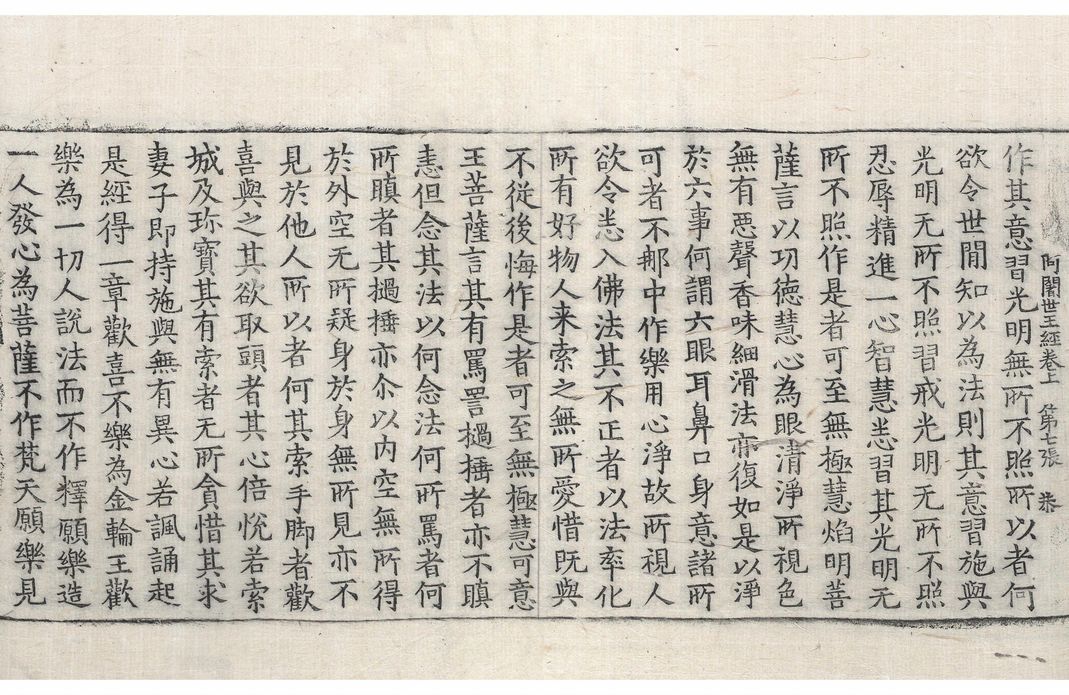 阿闍世王經卷上　第七張　恭
作其意習光明無所不照所以者何
欲令世間知以為法則其意習施與
光明无所不照習戒光明无所不照
忍辱精進一心智慧悉習其光明无
所不照作是者可至無極慧焰明菩
薩言以功徳慧心為眼清淨所視色
無有惡聲香味細滑法亦復如是以淨
於六事何謂六眼耳鼻口身意諸所
可者不那中作樂用心淨故所視人
欲令悉入佛法其不正者以法率化
所有好物人来索之無所愛惜既與
不從後悔作是者可至無極慧可意
王菩薩言其有罵詈撾捶者亦不瞋
恚但念其法以何念法何所罵者何
所瞋者其撾捶亦尒以内空無所得
於外空无所疑身於身無所見亦不
見於他人所以者何其索手脚者歡
喜與之其欲取頭者其心倍恱若索
城及珎寶其有索者无所貪惜其求
妻子即持施與無有異心若諷誦起
是經得一章歡喜不樂為金輪王歡
樂為一切人說法而不作釋願樂造
一人發心為菩薩不作梵天願樂見